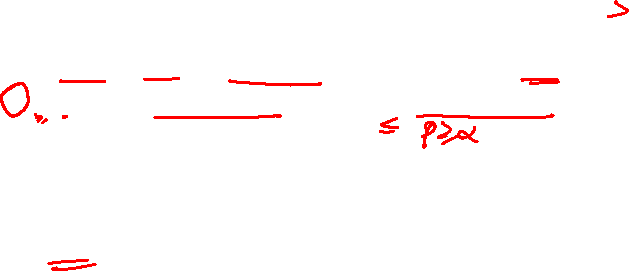 >
≤ p≥α